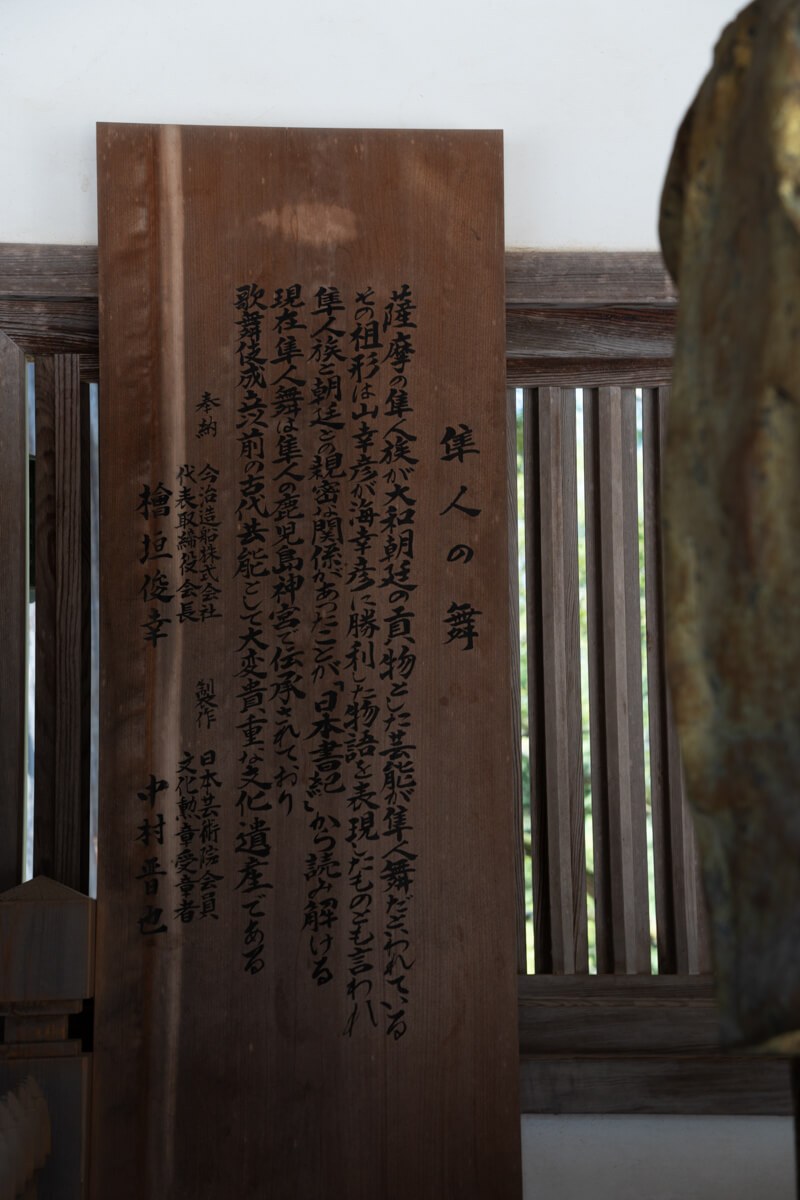 隼人の舞
薩摩の隼人族が大和朝廷の貢物とした芸能が隼人舞だといわれている
その祖形は山幸彦が海幸彦に勝利した物語を表現したものとも言われ
隼人族と朝廷との親密な関係があったことが「日本書紀」から読み解ける
現在隼人舞は隼人の鹿児島神宮で伝承されており
歌舞伎成立以前の古代芸能として大変貴重な文化遺産である
奉納
今治造船株式会社
代表取締役会長
檜垣俊幸
製作
日本芸術院会員
文化勲章受章者
中村晋也